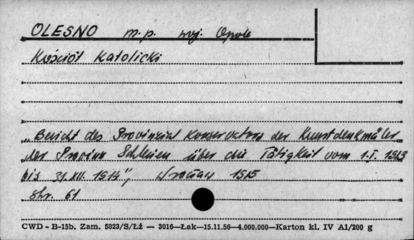 OLESNO m.p. woj. Opole
Kościół Katolicki
"Bericht des Provinzial Konservators der Kunstdenkmäler
der Provinz Schlesien über die Tätigkeit vom 1.I. 1913
bis 31.XII. 1914", Wrocław 1915
str. 61
CWD - B-15b. Zam. 5823/S/Łż — 3016—Łak—15.11.56—4.000.000—Karton kl. IV A1/200 g